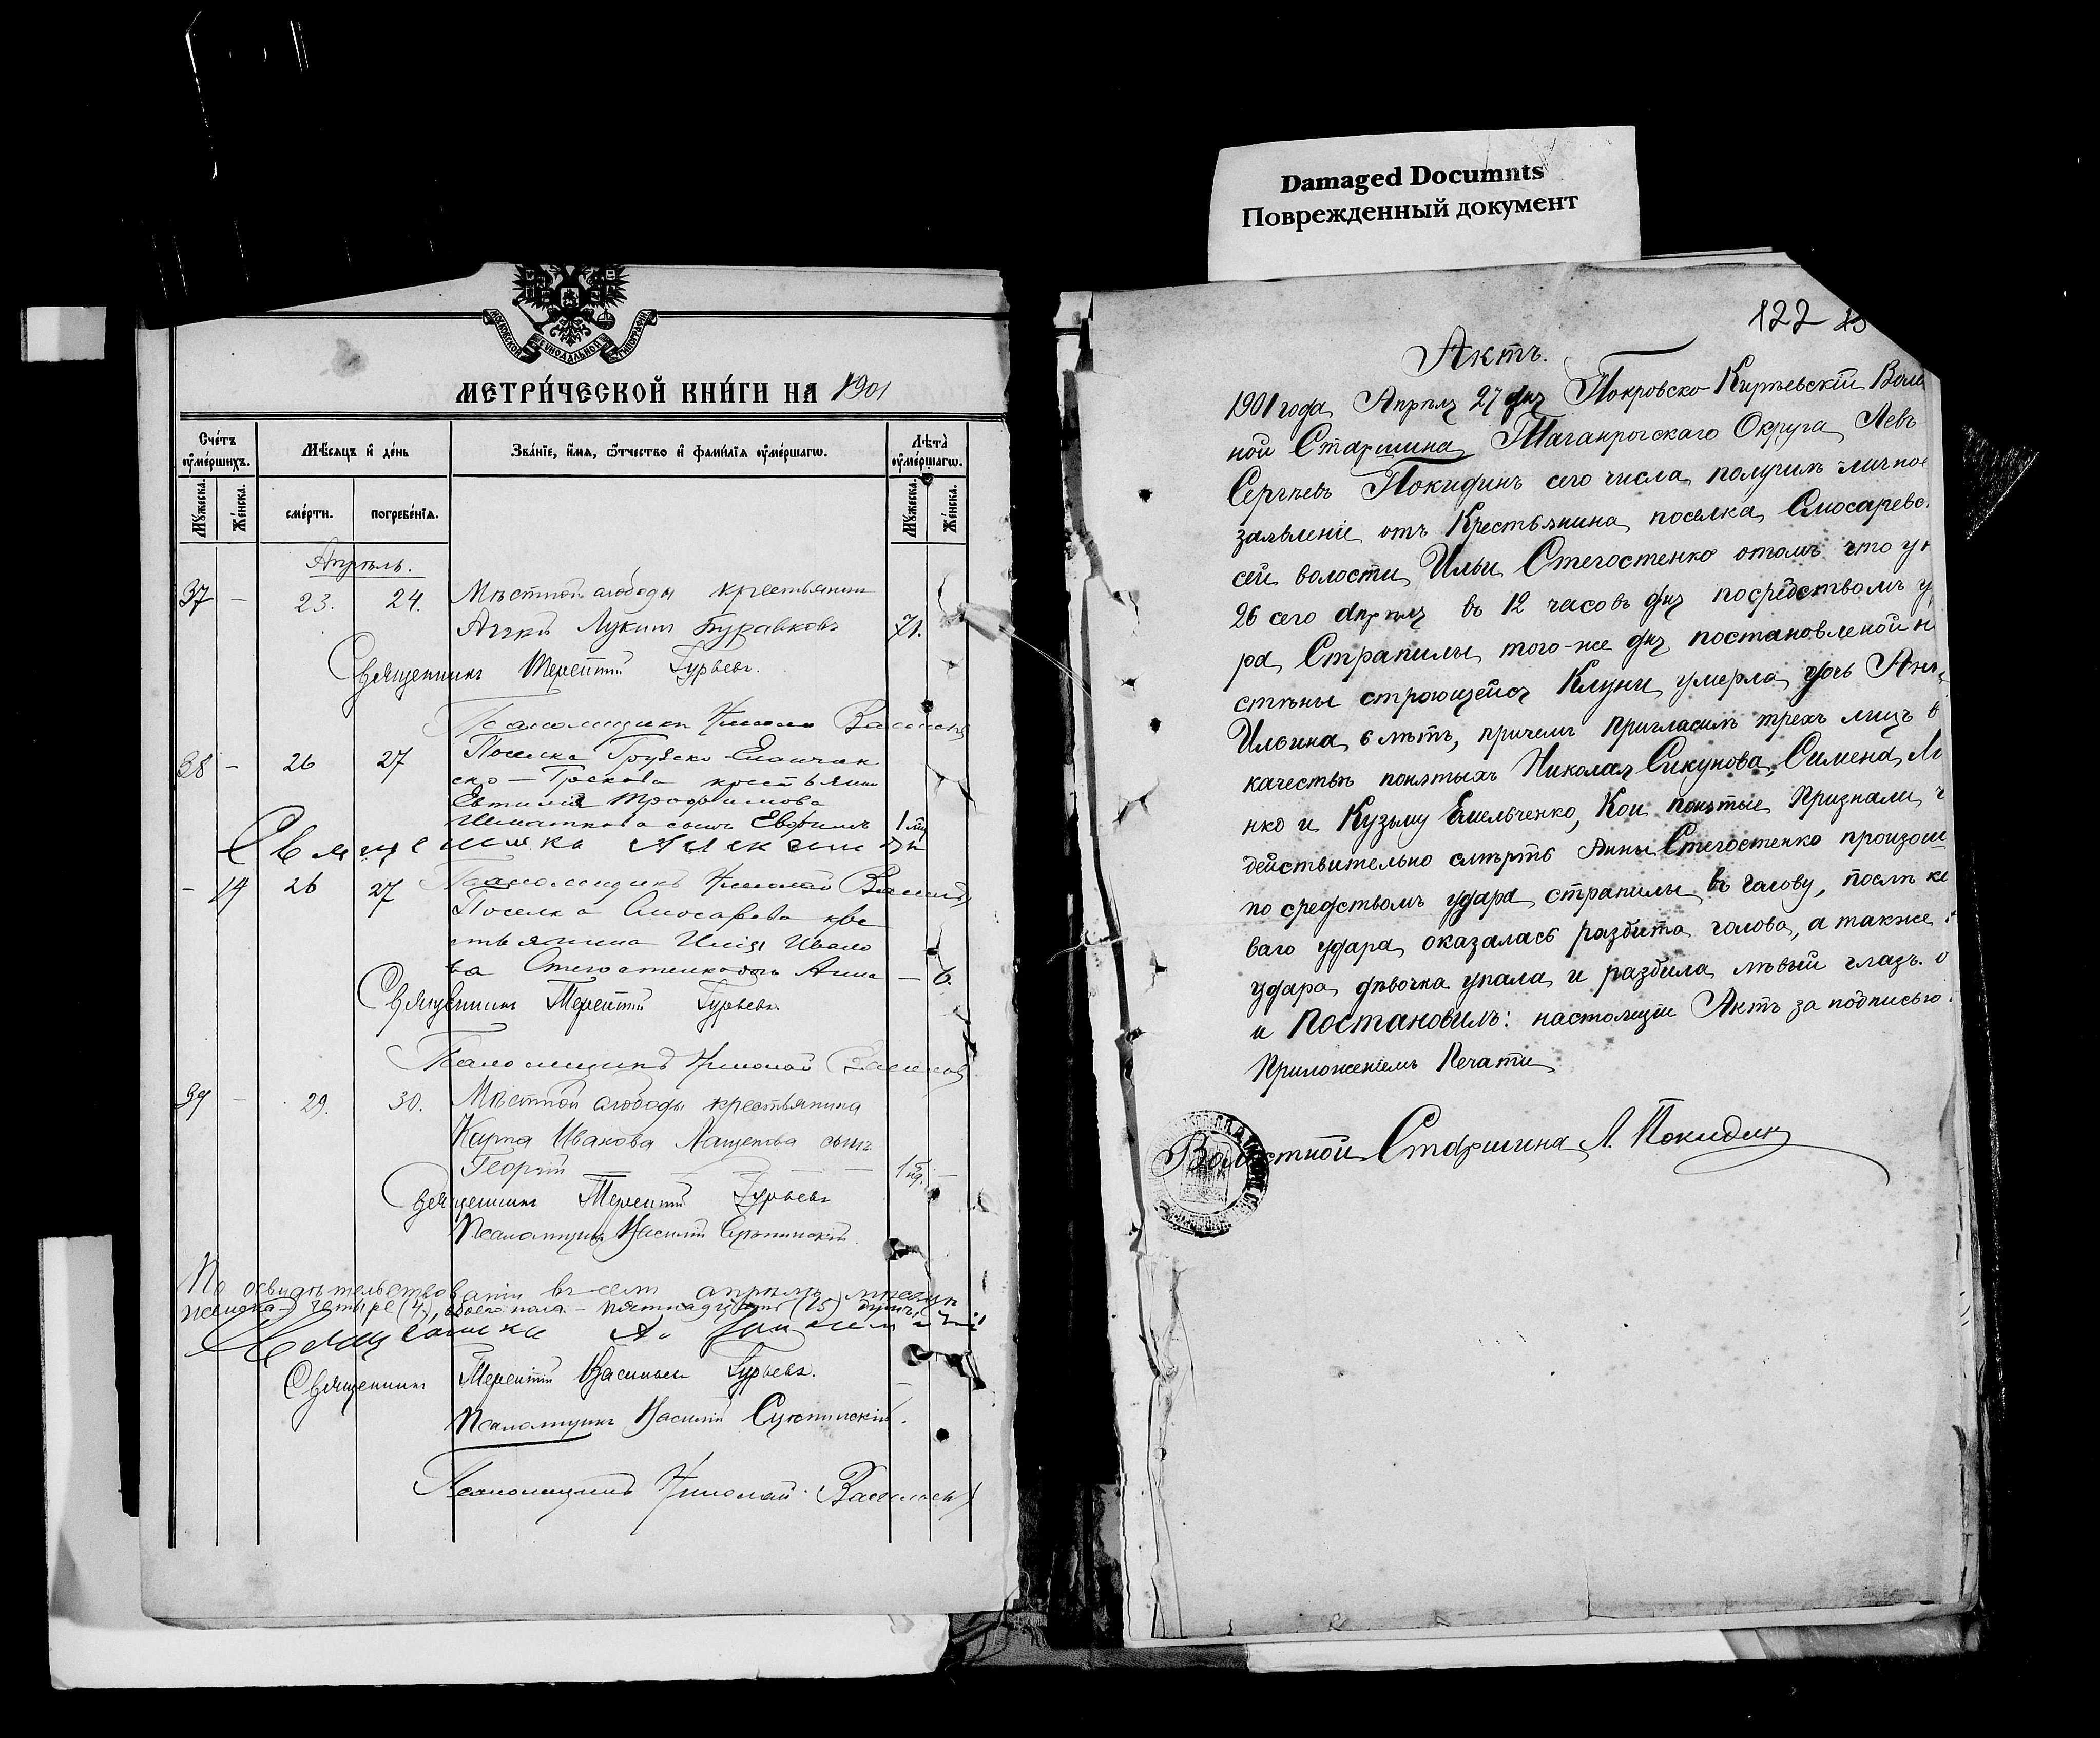 Damaged Documnts
Поврежденный документ
МОСКОВСКОЙ СѴНОДАЛЬНОЙ ТИПОГРАФІИ
МЕТРИ́ЧЕСКОЙ КНИ́ГИ НА 1901
Сче́тъ ᲂу҆ме́ршихъ.
Мѣ́сяцъ и҆ де́нь
Зва́нїе, и҆́мѧ, ѻ҆́тчество и҆ фами́лїѧ ᲂу҆ме́ршагѡ.
Лѣ́та ᲂу҆ме́ршагѡ.
Мꙋ́жеска.
Же́нска.
сме́рти.
погребе́нїѧ.
Мꙋ́жеска.
Же́нска.
Апрѣль.
37 – 23. 24. Мѣстной слободы крестьянин
Лукин Буравковъ 71.
Священникъ Терентій Гурьевъ.
Псаломщикъ Николай Васильевъ
38 – 26 27 Поселка Грузско Еланчик
ско – крестьянина
Евтихія Трофимова
сынъ Евфимъ 1
Священникъ
– 14 26 27 Псаломщикъ Николай Васильевъ
Поселка Слюсарева кре
стьянина Иліи Ивано
ва Стегостенко дочь Анна – 6.
Священникъ Терентій Гурьевъ.
Псаломщикъ Николай Васильевъ
39 – 29. 30. Мѣстной слободы крестьянина
Карпа Иванова Лащенова сынъ
Георгій 1 –
Священникъ Терентій Гурьевъ
Псаломщикъ Василій
По освидѣтельствованіи въ семъ апрѣлѣ мѣсяцѣ
женска – четыре (4), обоего пола – пятнадцать (15) душъ
Священникъ А.
Священникъ Терентій Васильевъ Гурьевъ.
Псаломщикъ Василій
Псаломщикъ Николай Васильевъ
122
Актъ.
1901 года Апрѣля 27 дня Покровско-Кирѣевскій Воло
ной Старшина Таганрогскаго Округа Левъ
Сергѣевъ Покидинъ сего числа получилъ личное
заявленіе отъ Крестьянина поселка Слюсарево
сей волости Ильи Стегостенко отомъ что у н
26 сего Апрѣля въ 12 часовъ дня посредствомъ у
ра Страпилы того-же дня постановленой н
стѣны строющейся Клуни умерла дочь Анн
Ильина 6 лѣтъ, причемъ пригласилъ трехъ лицъ в
качествѣ понятыхъ Николая Сикунова, Симена Ли
нко и Кузьму Емельченко, Кои понятые Признали ч
действительно смѣрть Анны Стегостенко произош
по средствомъ удара страпилы въ галову, послѣ ко
ваго удара оказалась разбита голова, а также
удара дѣвочка упала и разбила лѣвый глазъ. о
и Постановилъ: настоящіе Актъ за подписью
Приложеніемъ Печати
Волостной Старшина Л. Покидин